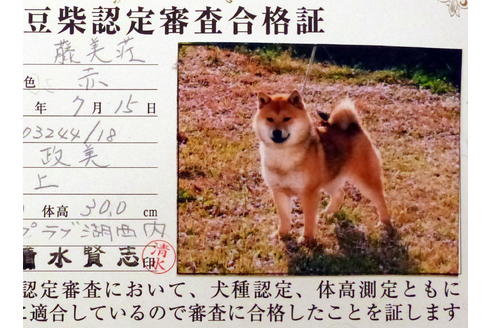 豆柴認定審査合格証
藤美荘
色 赤
年 7月15日
03244/18
政美
上
体高 30.0 cm
プラブ湖西内
水賢志 印
清水
認定審査において、犬種認定、体高測定ともに
に適合しているので審査に合格したことを証します